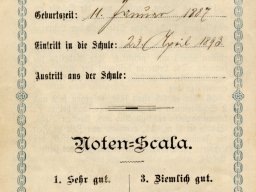 Geburtszeit: 11. Januar 1887
Eintritt in die Schule: 23. April 1893
Austritt aus der Schule:
Noten-Scala.
1. Sehr gut. 3. Ziemlich gut.